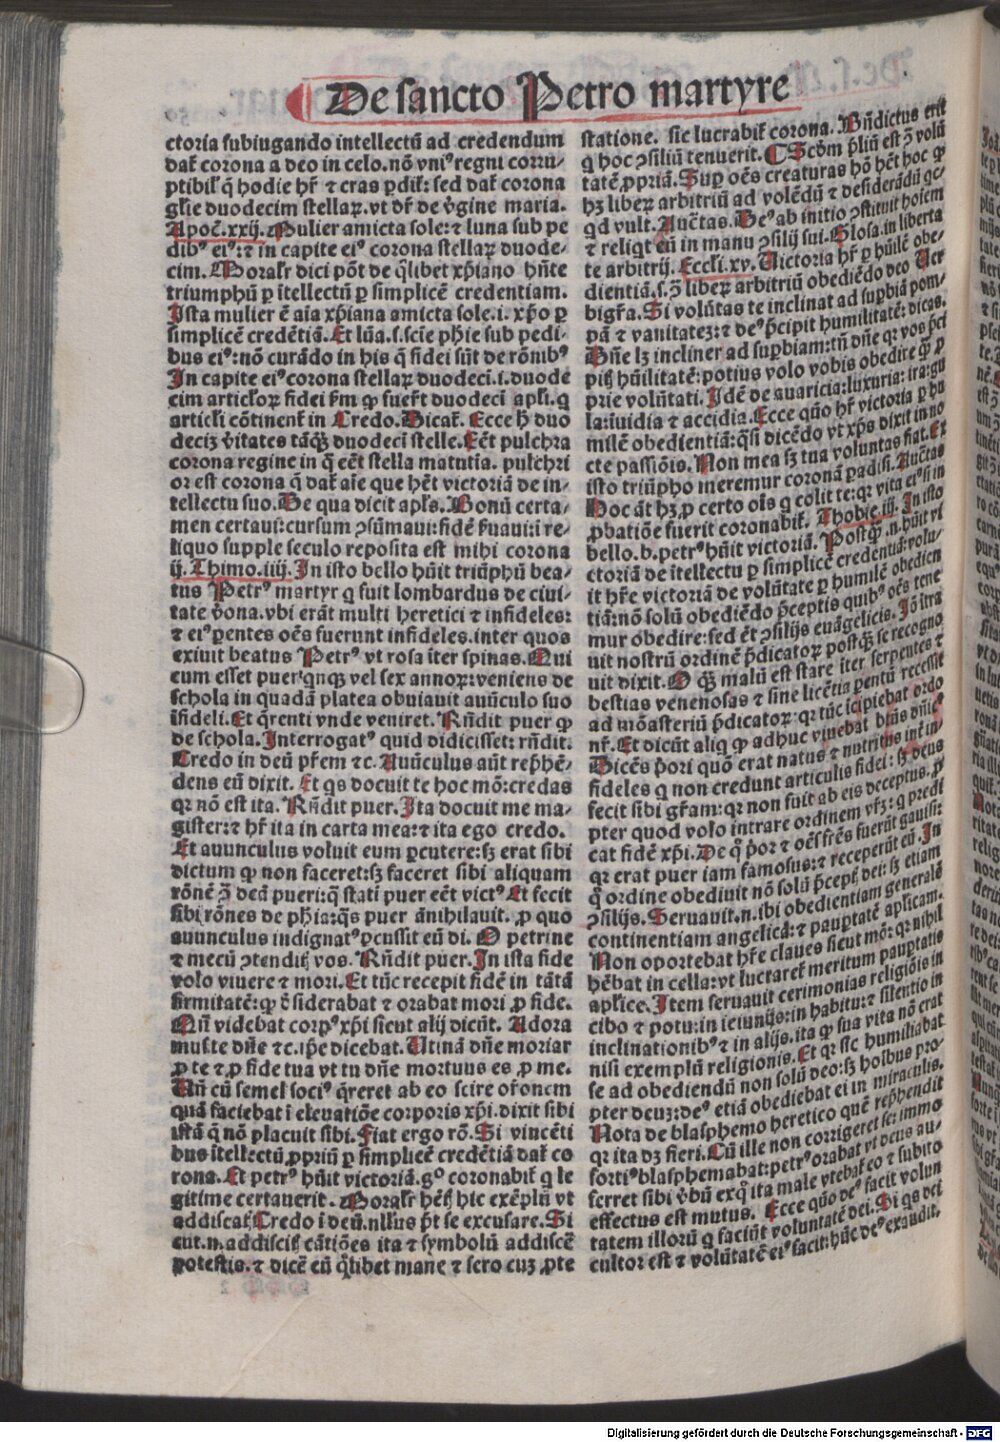 De sancto Petro martyre
ctoria subiugando intellectū ad credendum
dat̄ corona a deo in celo. nō vniꝰ regni corru/
ptibil̓ q̄ hodie hr̄ ⁊ cras ꝑdit̄: sed dat̄ corona
gl̓ie duodecim stellaꝝ. vt dr̄ de v̓gine maria.
Apoc̄. xxij. Mulier amicta sole: ⁊ luna sub pe
dibꝰ eiꝰ: ⁊ in capite eiꝰ corona stellaꝝ duode/
cim. Moralr̄ dici pōt de q̄libet xp̄iano hn̄te
triumphū ꝑ ītellectū ꝑ simplicē credentiam.
Ista mulier ē aīa xp̄iana amicta sole. i. xp̄o ꝑ
simplicē credētiā. Et lūa. s. scīe ph̄ie sub pedi/
bus eiꝰ: nō curādo in his q̄ fidei sūt de rōnibꝰ
In capite eiꝰ corona stellaꝝ duodeci. i. duode
cim articloꝝ fidei ẜm ꝙ fuer̄t duodeci apl̓i. q
articl̓i cōtinent̄ in Credo. Dicat̄. Ecce h̄ duo
decīꝫ v̓itates tāqꝫ duodecī stelle. Eēt pulchra
corona regine in q̄ eēt stella matutīa. pulchri
or est corona q̄ dat̄ aīe que hēt victoriā de in/
tellectu suo. De qua dicit apl̓s. Bonū certa/
men certaui: cursum ꝯsūmaui: fidē ẜuaui: ī re/
liquo supple seculo reposita est mihi corona
ij. Thimo. iiij. In isto bello hūit triūphū bea/
tus Petrꝰ martyr q fuit lombardus de ciui/
tate v̓ona. vbi erāt multi heretici ⁊ infideles:
⁊ eiꝰ ꝑentes oēs fuerunt infideles. inter quos
exiuit beatus Petrꝰ vt rosa īter spinas. Qui
cum esset puer qnqꝫ vel sex annoꝝ: veniens de
schola in quadā platea obuiauit auūculo suo
īfideli. Et q̄renti vnde veniret. Rn̄dit puer ꝙ
de schola. Interrogatꝰ quid didicisset: rn̄dit.
Credo in deū pr̄em ⁊c. Auūculus aūt rep̄hē/
dens eū dixit. Et qs docuit te hoc mō: credas
qꝛ nō est ita. Rn̄dit puer. Ita docuit me ma/
gister: ⁊ hr̄ ita in carta mea: ⁊ ita ego credo.
Et auunculus voluit eum ꝑcutere: sꝫ erat sibi
dictum ꝙ non faceret: sꝫ faceret sibi aliquam
rōnē ꝯ dcā pueri: q̄ stati puer eēt victꝰ Et fecit
sibi rōnes de ph̄ia: q̄s puer ānihilauit. ꝓ quo
auunculus indignatꝰ ꝑcussit eū di. O petrine
⁊ mecū ꝯtenditꝭ vos. Rn̄dit puer. In ista fide
volo viuere ⁊ mori. Et tūc recepit fidē in tātā
firmitatē: ꝙ ꝯ̄siderabat ⁊ orabat mori ꝓ fide.
Qn̄ videbat corpꝰ xp̄i sicut alij dicūt. Adora
muste dn̄e ⁊c. ip̄e dicebat. Utinā dn̄e moriar
ꝓ te ⁊ ꝓ fide tua vt tu dn̄e mortuus es ꝓ me.
Un̄ cū semel sociꝰ q̄reret ab eo scire or̄onem
quā faciebat ī eleuatiōe corporis xp̄i. dixit sibi
istā q̄ nō placuit sibi. Fiat ergo rō. Si vincēti
bus ītellectū ꝓpriū ꝑ simplicē credētiā dat̄ co
rona. Et petrꝰ hūit victoriā. gº coronabit̄ q le
gitime certauerit. Moralr̄ hēs hic exēplū vt
addiscas Credo ī deū. nllus pt̄ se excusare. Si
cut. n. addiscitꝭ cātiōes ita ⁊ symbolū addiscē
potestis. ⁊ dicē eū q̄libet mane ⁊ sero cuꝫ ꝓte
statione. sic lucrabit̄ corona. Bn̄dictus erit
q hoc ꝯsiliū tenuerit. ¶ Scd̄m p̄liū est ꝯ̄ volū
tatē ꝓpriā. Suꝑ oēs creaturas hō hēt hoc ꝙ
hꝫ liberꝝ arbitriū ad volēdū ⁊ desiderādū qc/
qd vult. Auc̄tas. Deꝰ ab initio ꝯstituit hoīem
⁊ reliqt eū in manu ꝯsilij sui. Glosa. in liberta
te arbitrij. Eccl̓i. xv. Uictoria hr̄ ꝑ hūilē obe/
dientiā. s. ꝯ̄ liberꝝ arbitriū obediēdo deo Uer
bigr̄a. Si volūtas te inclinat ad suꝑbiā pom/
pā ⁊ vanitateꝫ: ⁊ deꝰ p̄cipit humilitatē: dicas.
Dn̄e lꝫ incliner ad suꝑbiam: tn̄ dn̄e qꝛ vos p̄ci
pitꝭ hūilitatē: potius volo vobis obedire qꝫ ꝓ
prie volūtati. Idē de auaricia: luxuria: ira: gu
la: iuidia ⁊ accidia. Ecce quō hr̄ victoria ꝑ hu
milē obedientiā: q̄si dicēdo vt xp̄s dixit in no
cte passiōis. Non mea sꝫ tua voluntas fiat. Ex
isto triūpho meremur coronā ꝑadisi. Auc̄tas
Hoc āt hꝫ ꝓ certo oīs q̄ colit te: qꝛ vita eiꝰ si in
ꝓbatiōe fuerit coronabit̄. Thobie. iij. In isto
bello. b. petrꝰ hūit victoriā. Postqꝫ. n. hūit vi
ctoriā de ītellectu ꝑ simplicē credentiā: volu/
it hr̄e victoriā de volūtate ꝑ humilē obedien
tiā: nō solū obediēdo p̄ceptis quibꝰ oēs tene
mur obedire: sed ēt ꝯsilijs euāgelicis. Iō ītra
uit nostrū ordinē p̄dicatorꝝ postqꝫ se recogno
uit dixit. O qꝫ malū est stare īter serpentes ⁊
bestias venenosas ⁊ sine licētia ꝑentū recessit
ad mōasteriū p̄dicatorꝝ: qꝛ tūc īcipiebat ordo
nr̄. Et dicūt aliq ꝙ adhuc viuebat btūs dn̄icꝰ
Dicēs p̄ori quō erat natus ⁊ nutritus int̄ in/
fideles q non credunt articulis fidei: sꝫ deus
fecit sibi gr̄am: qꝛ non fuit ab eis deceptus. ꝓ
pter quod volo intrare ordinem vr̄ꝫ: q p̄di
cat fidē xp̄i. De q̄ p̄or ⁊ oēs fr̄es fuerūt gauisi:
qꝛ erat puer iam famosus: ⁊ receperūt eū. In
q̄ ordine obediuit nō solū p̄ceptꝭ dei: sꝫ etiam
ꝯsilijs. Seruauit. n. ibi obedientiam generalē
continentiam angelicā: ⁊ pauꝑtatē aplicam.
Non oportebat hr̄e claues sicut mō: qꝛ nihil
hēbat in cella: vt lucraret̄ meritum pauꝑtatis
apl̓ice. Item seruauit cerimonias religiōis in
cibo ⁊ potu: in ieiunijs: in habitu: ⁊ silentio in
inclinationibꝰ ⁊ in alijs. ita ꝙ sua vita nō erat
nisi exemplū religionis. Et qꝛ sic humiliabat
se ad obediendū non solū deo: sꝫ hoībus pro/
pter deuꝫ: deꝰ etiā obediebat ei in miraculis.
Nota de blasphemo heretico quē rep̄hendit
qꝛ ita dꝫ fieri. Cū ille non corrigeret se: immo
fortiꝰ blasphemabat: petrꝰ orabat vt deus au/
ferret sibi v̓bū exq̄ ita male vtebat̄ eo ⁊ subito
effectus est mutus. Ecce quō deꝰ facit volun
tatem illorū q faciūt voluntatē dei. Si qs dei
cultor est ⁊ volūtatē eiꝰ facit: hūc deꝰ exaudit.
Digitalisierung gefördert durch die Deutsche Forschungsgemeinschaft - DFG